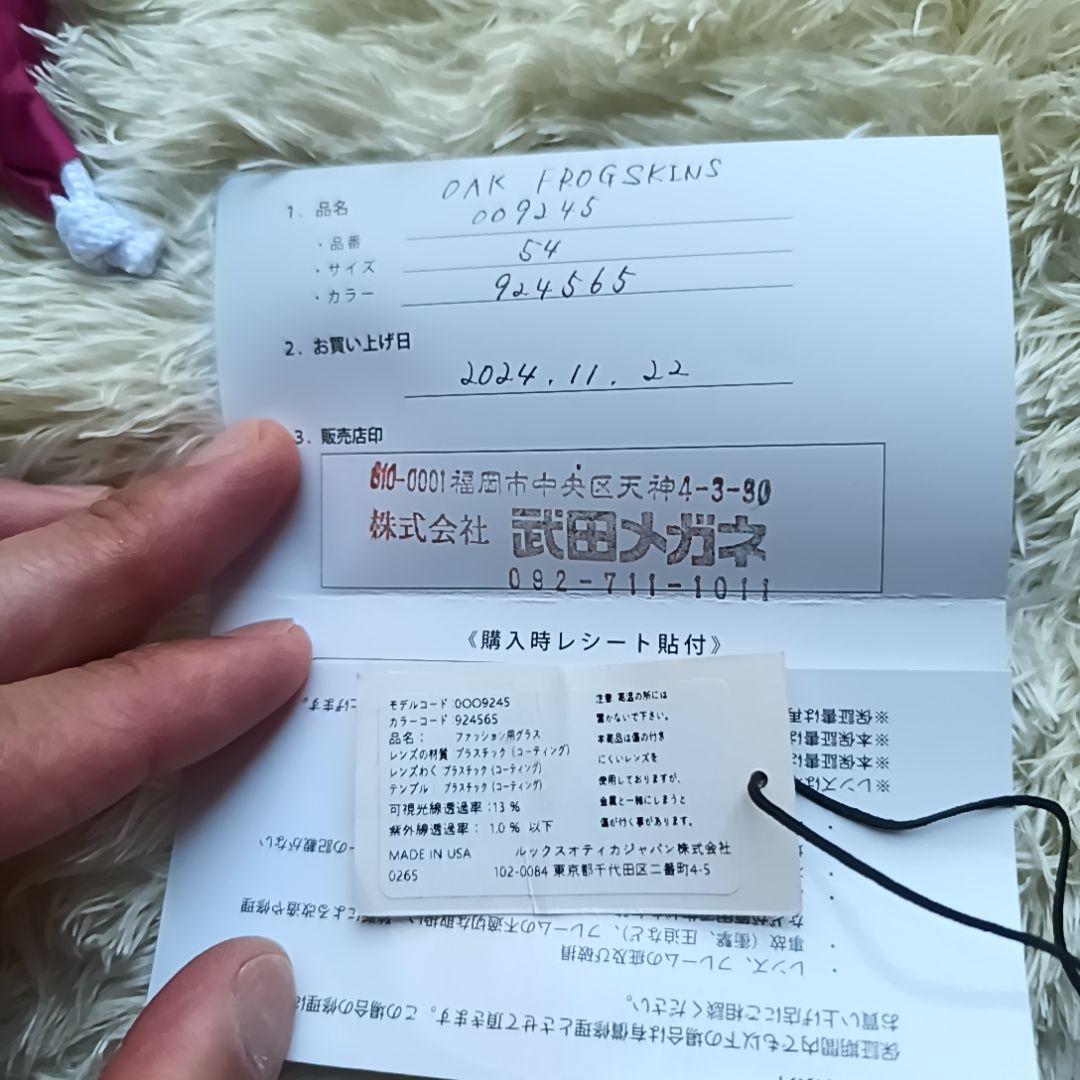 1. 品名 OAK FROGSKINS
・品番 009245
・サイズ 54
・カラー 924565
2. お買い上げ日
2024.11.22
3. 販売店印
810-0001福岡市中央区天神4-3-30
株式会社 武田メガネ
092-711-1011
《購入時レシート貼付》
モデルコード:0OO9245
カラーコード:924565
品名: ファッション用グラス
レンズの材質:プラスチック(コーティング)
レンズわく プラスチック(コーティング)
テンプル プラスチック(コーティング)
可視光線透過率:13%
紫外線透過率: 1.0% 以下
MADE IN USA ルックスオティカジャパン株式会社
0265 102-0084 東京都千代田区二番町4-5
注意:高温の所には
置かないで下さい。
本製品は傷の付き
にくいレンズを
使用しておりますが、
金属と一緒にしまうと
傷が付く事があります。
保証期間内でも以下の場合は有償修理とさせて頂きます。この場合の修理に
お買い上げ店にご相談ください。
・レンズ、フレームの症及び破損
・事故(衝撃、圧迫など)、フレームの不適切な取扱い
による改造や修理
の記載がない
※レンズは
※本保証書
※本保証書は
※保証書は再
上げます。